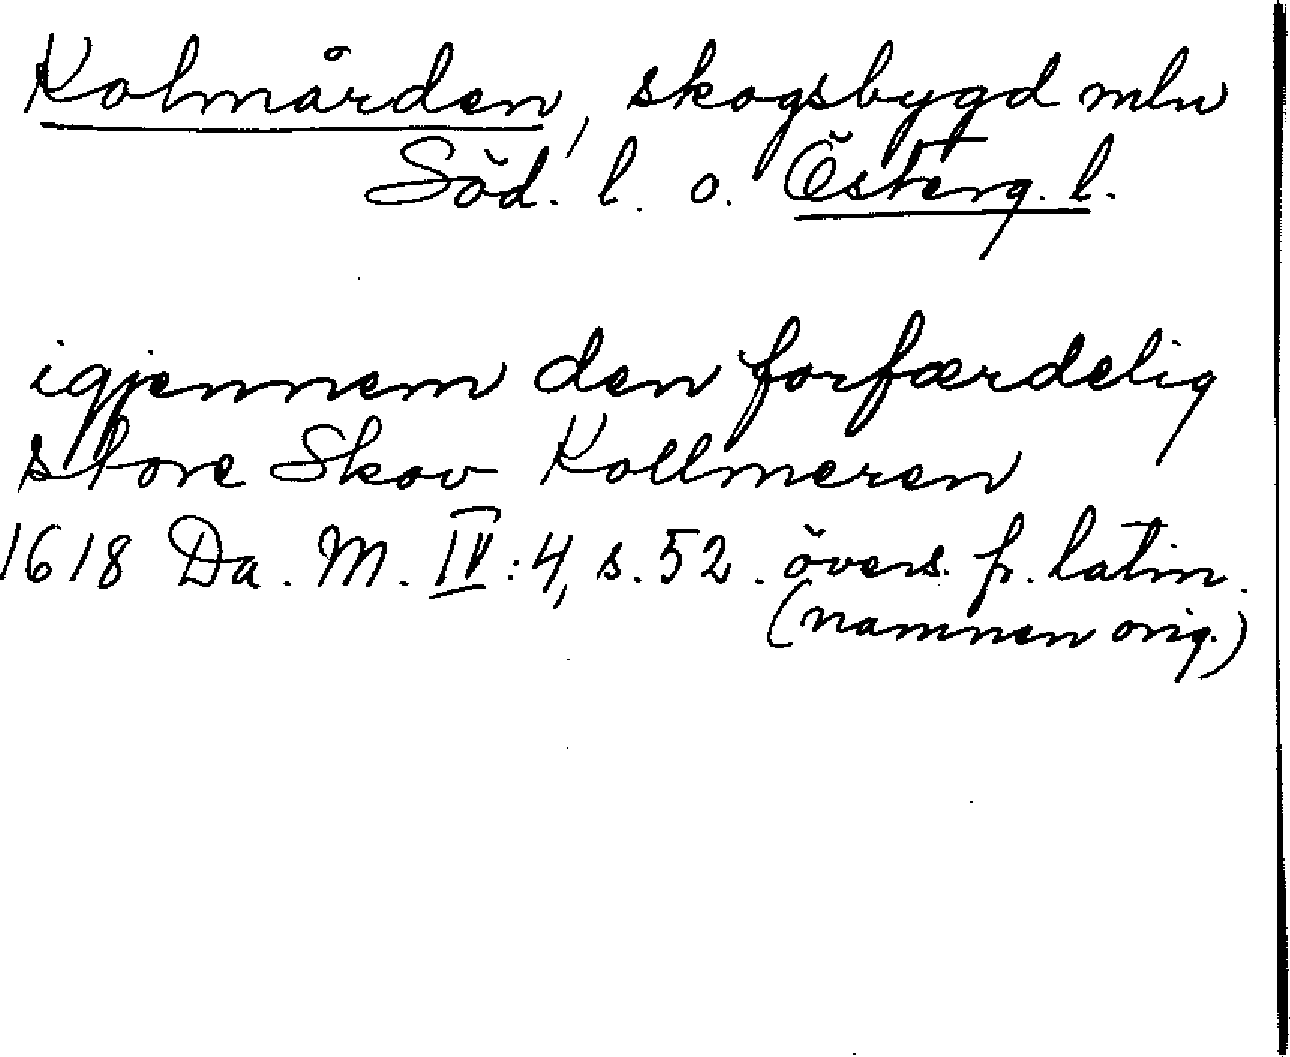 Kolmården, skogsbygd mln
Söd. l. o. Österg. l.
igjennem den forfærdelig
store Skov Kollmeren
1618 Da. M. IV:4, s. 52. övers. fr. latin.
(namnen orig.)